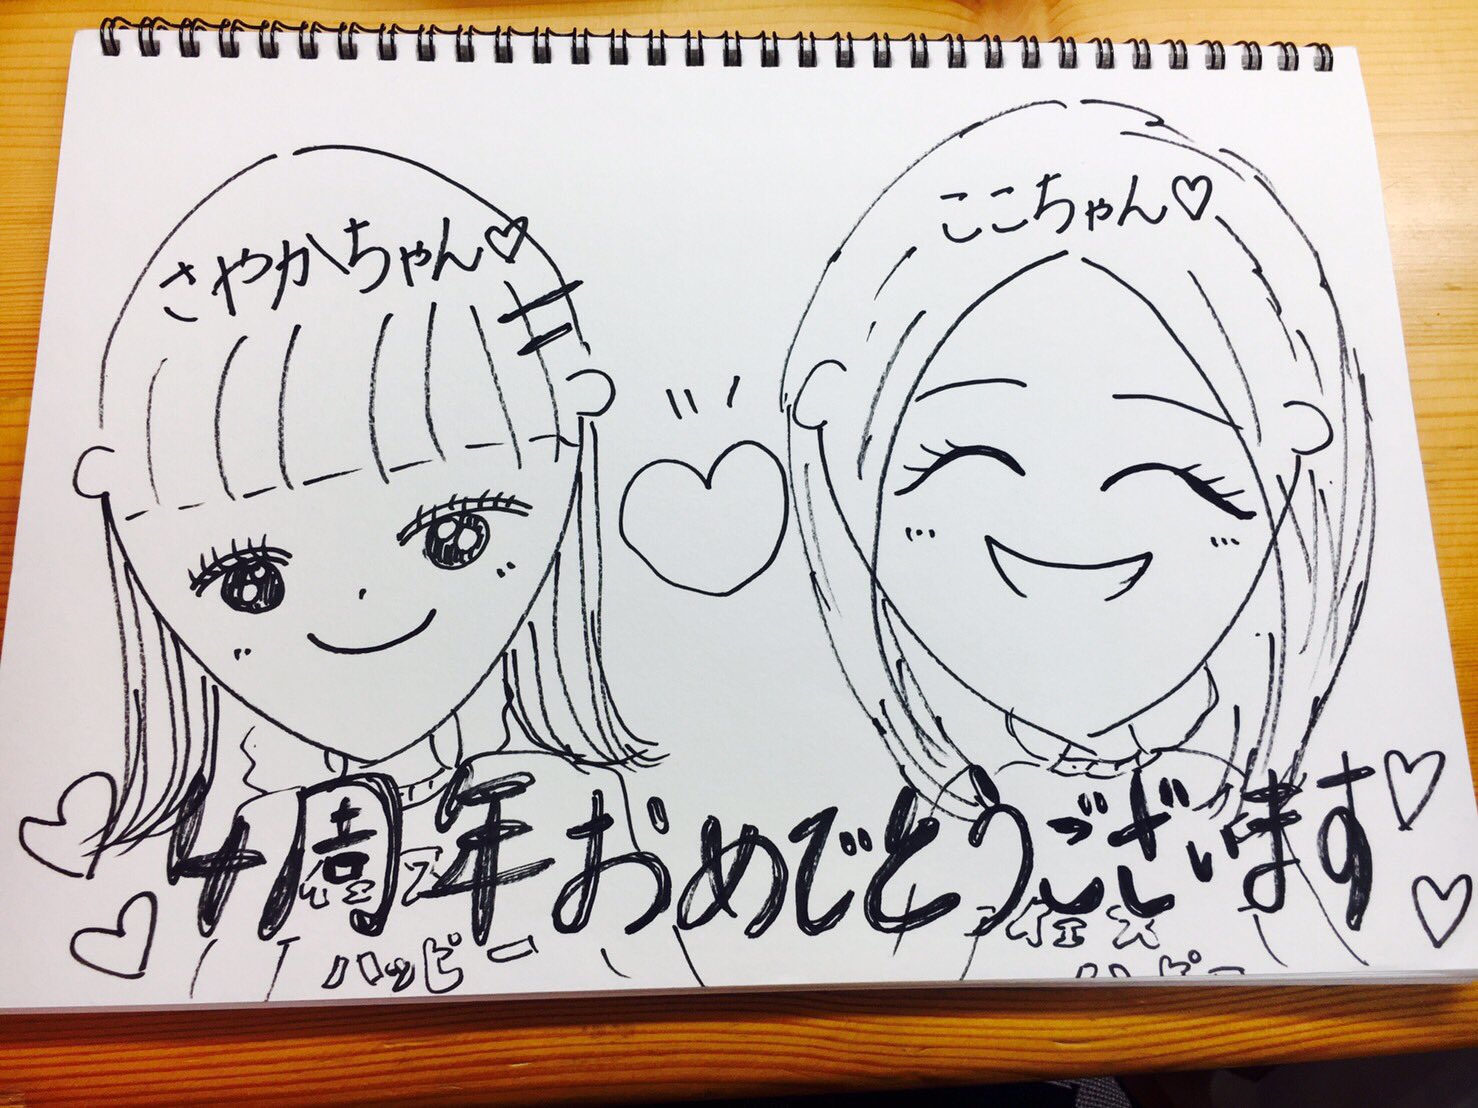 さやかちゃん♡
ここちゃん♡
4周年おめでとうございます
イェス
ハッピー
イェス
ハッピー